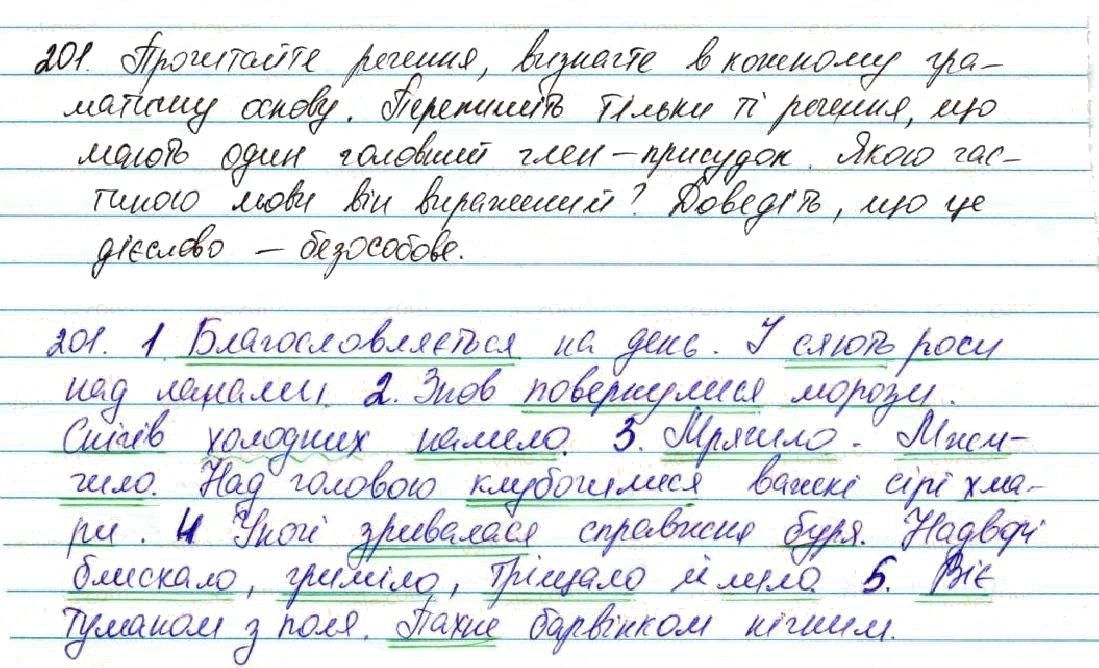 201. Прочитайте речення, визначте в кожному гра-
матичну основу. Перепишіть тільки ті речення, що
мають один головний член – присудок. Якою час-
тиною мови він виражений? Доведіть, що це
дієслово – безособове.
201. 1 Благословляється на день. І сяють роси
над ланами. 2. Знов повернулися морози.
Снігів холодних намело. 3. Мрячило. Мжи-
чило. Над головою клубочилися важкі сірі хма-
ри. 4 Уночі зривалася справжня буря. Надворі
блискало, гриміло, тріщало й лило. 5. Віє
туманом з поля. Пахне барвінком ніжним.